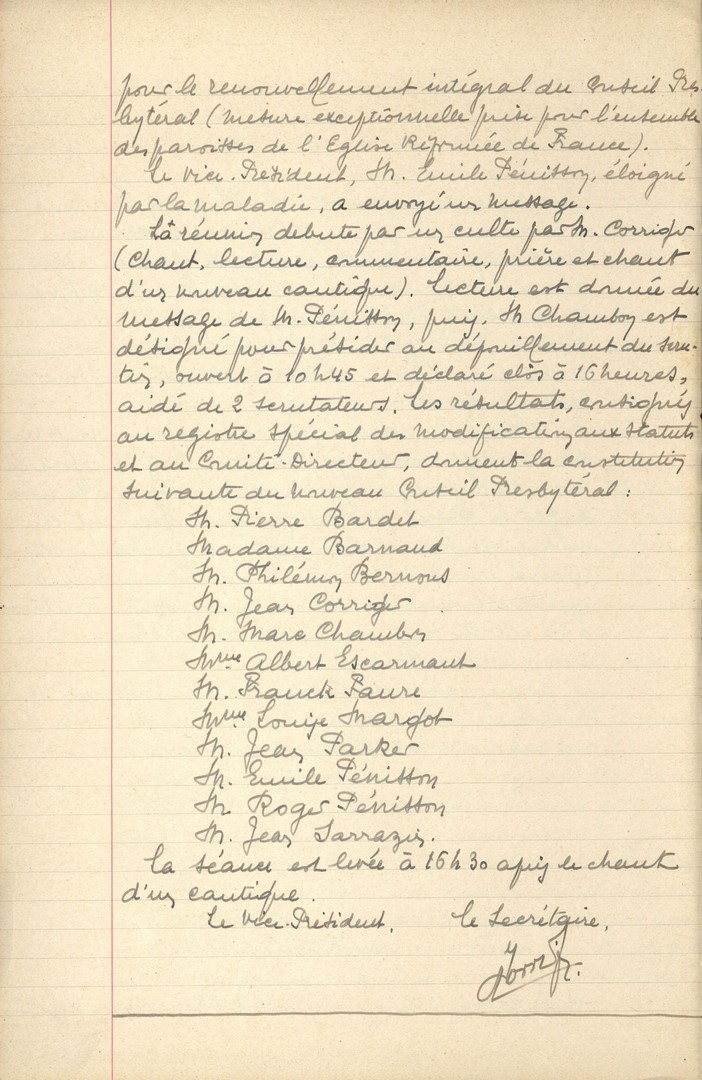 pour le renouvellement intégral du Conseil Pres-
bytéral (mesure exceptionnelle prise pour l'ensemble
des paroisses de l'Eglise Réformée de France).
Le Vice-Président, M. Emile Pénisson, éloigné
par la maladie, a envoyé un message.
La réunion débute par un culte par M. Corriger
(Chant, lecture, commentaire, prière et chant
d'un nouveau cantique). Lecture est donnée du
message de M. Pénisson, puis, M Chambon est
désigné pour présider au dépouillement du scru-
tin, ouvert à 10h45 et déclaré clôs à 16 heures,
aidé de 2 scrutateurs. Les résultats, consignés
au registre spécial des modifications aux statuts
et au Comité-Directeur, donnent la constitution
suivante du nouveau Conseil Presbytéral :
M. Pierre Bardet
Madame Barnaud
M. Philémon Bernous
M. Jean Corriger
M. Marc Chambon
Mme Albert Escarmant
M. Franck Faure
Mme Louise Margot
M. Jean Parker
M. Emile Pénisson
M Roger Pénisson
M. Jean Sarrazin.
La séance est levée à 16h30 après le chant
d'un cantique.
Le Vice-Président, Le Secrétaire,